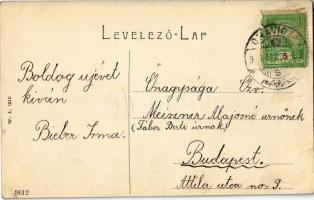 LEVELEZŐ-LAP
Boldog ujévet
kiván
Bieber Irma.
Őnagysága Özv.
Meiszner Alajomé urnőnek
(Fáber Berti urnok)
Budapest.
Attila utca no 9.
9612